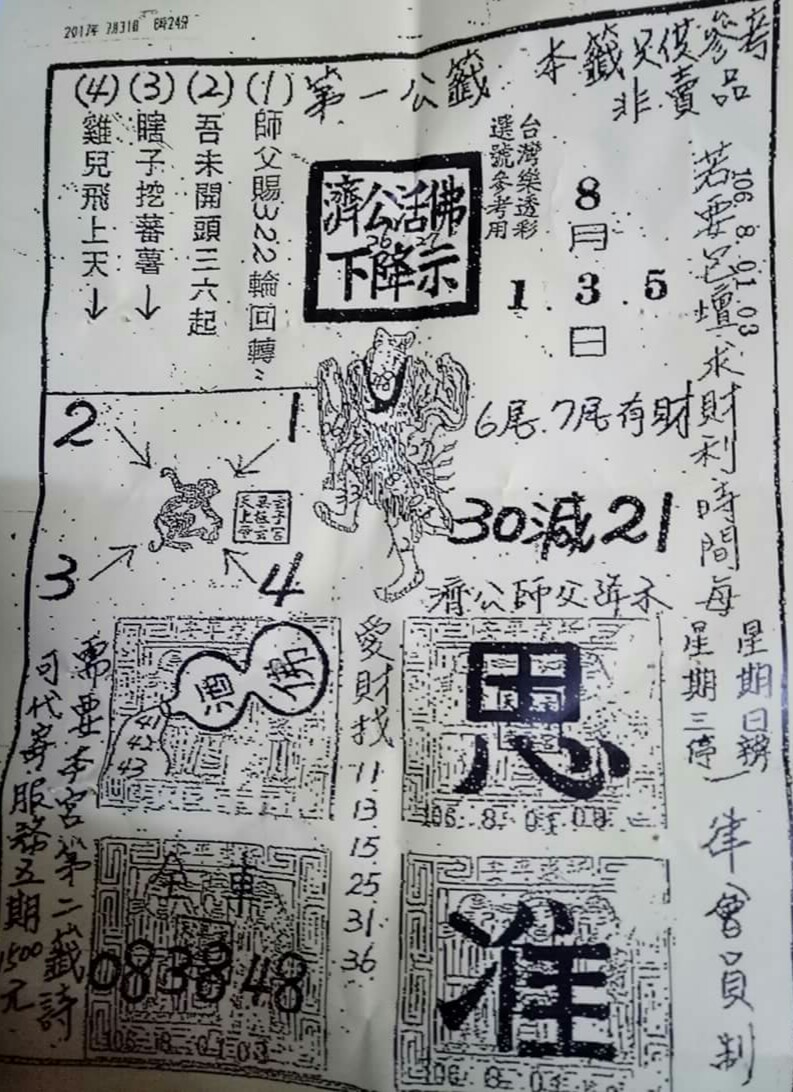 2017年 7月31日 6時24分
本籤只供參考
非賣品
第一公籤
(1) 師父賜322輪回轉
(2) 吾未開頭三六起
(3) 瞎子挖蕃薯↓
(4) 雞兒飛上天↓
濟公活佛
26 27
下降示
台灣樂透彩
選號參考用
8月
1.3.5
日
106.8.01.03
若要呂壇求財利時間每
星期日務
星期三停
一律會員制
6尾.7尾有財
30減21
濟公師父降示
2
1
3
4
33
愛財找
11
13
15
25
31
36
酒
佛
41
42
43
思
106.8.01.03
全車
083848
106.8.01.03
准
106.8.01.03
需要本宮第二籤詩
可代寄服務五期1500元